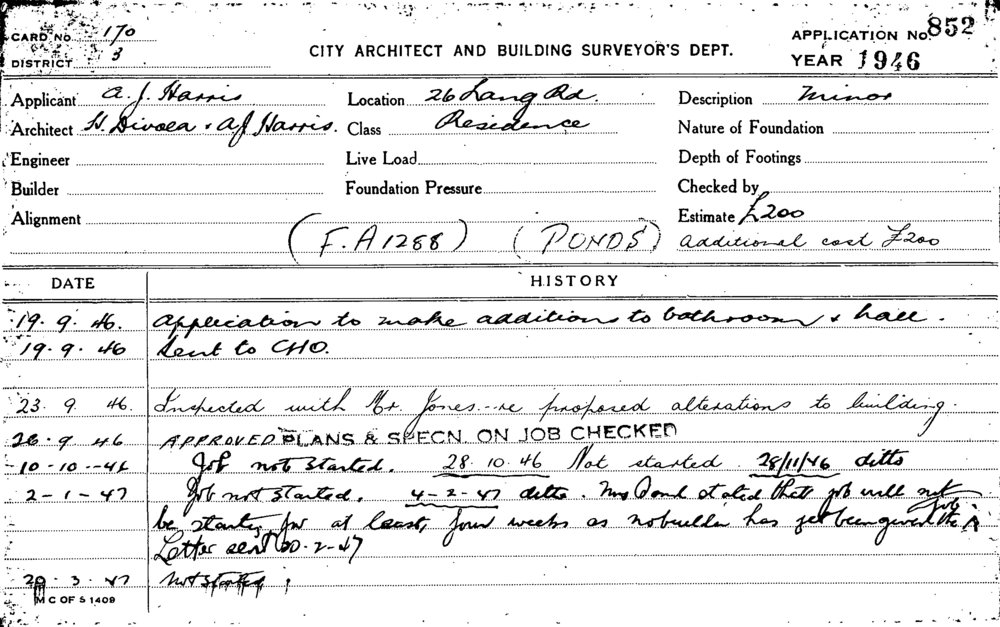 CARD NO. 170
DISTRICT 3
CITY ARCHITECT AND BUILDING SURVEYOR'S DEPT.
APPLICATION No. 852
YEAR 1946
Applicant A. J. Harris
Location 26 Lang Rd.
Description Minor
Architect H. Divola & A J Harris.
Class Residence
Nature of Foundation
Engineer
Live Load
Depth of Footings
Builder
Foundation Pressure
Checked by
Alignment
Estimate £200
(F.A 1288) (PONDS) additional cost £200
DATE HISTORY
19. 9. 46. Application to make additions to bathroom & hall.
19. 9. 46 Sent to CHO.
23. 9. 46. Inspected with Mr. Jones re proposed alterations to building.
26. 9 46 APPROVED PLANS & SPECN. ON JOB CHECKED
10-10-46 Job not started. 28. 10. 46 Not started 28/11/46 ditto
2-1-47 Job not started. 4-2-47 ditto. Mrs Pond stated that job will not
be started for at least four weeks as no builder has yet been given the job
Letter sent 20-2-47
20. 3. 47 Not started
M C OF S 1409